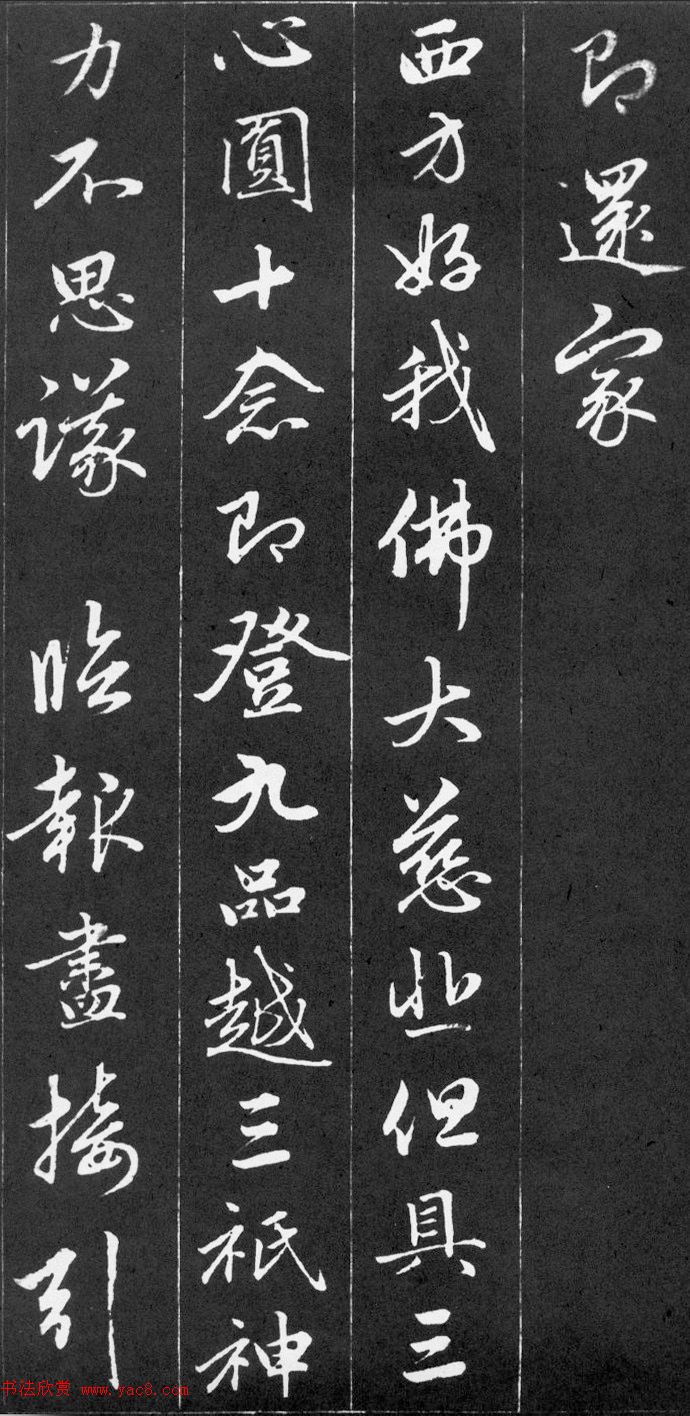 即還家
西方好我佛大慈悲但具三
心圓十念即登九品越三祇神
力不思議 臨報盡接引
书法欣赏 www.yac8.com